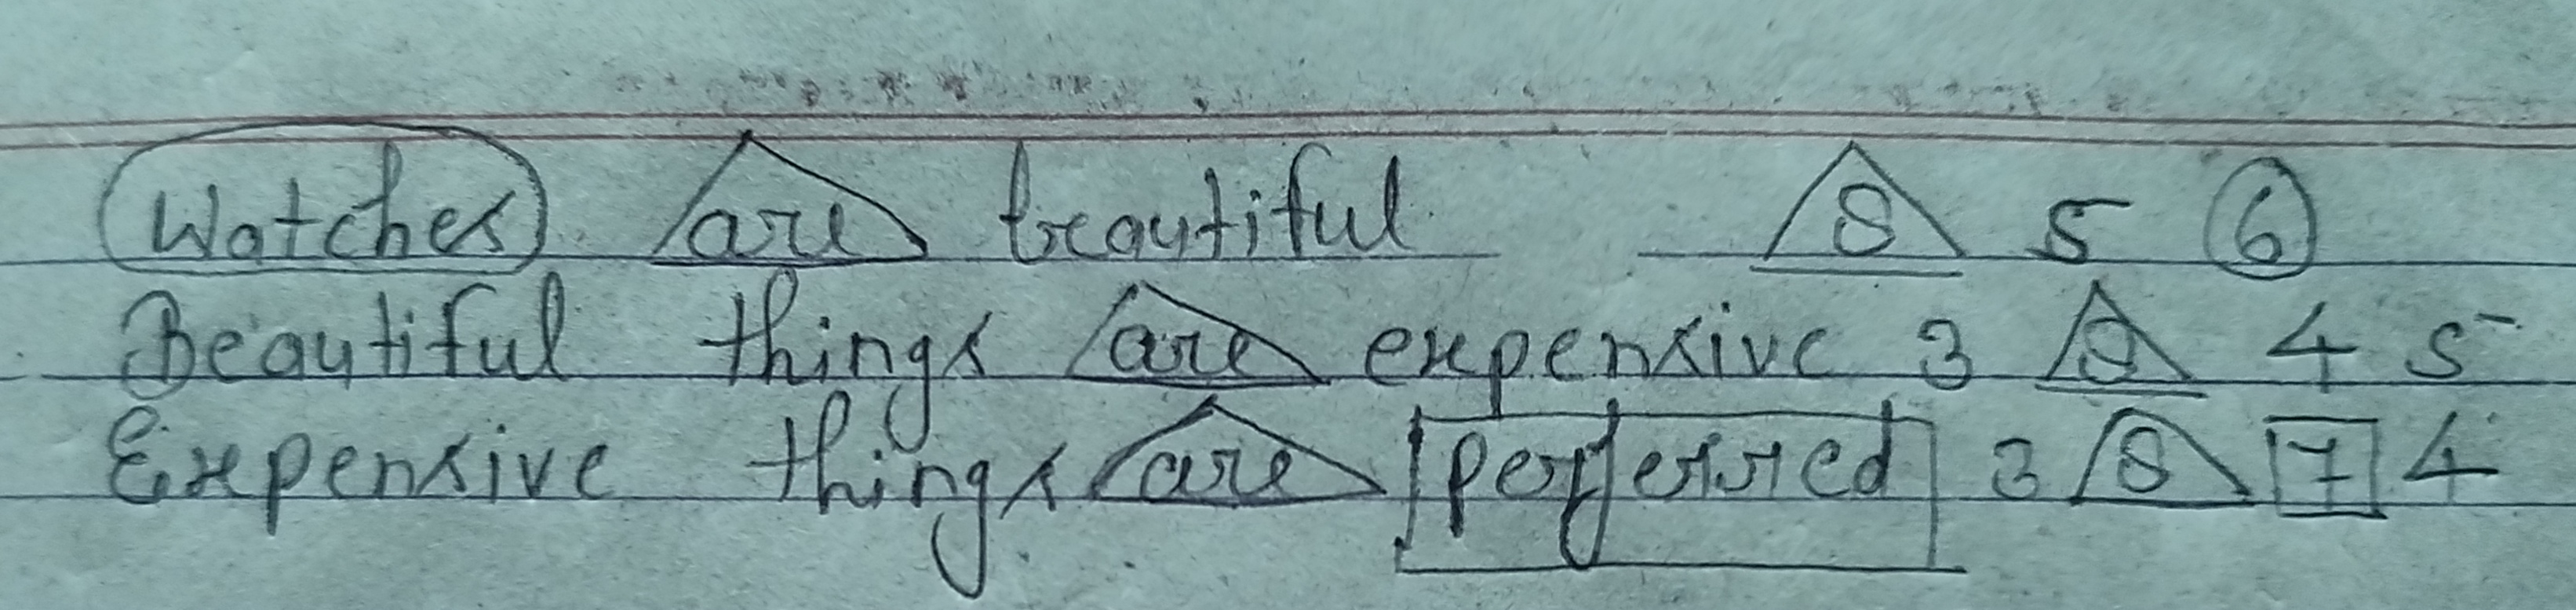 Watches are beautiful 8 5 6
Beautiful things are expensive 3 8 4 5
Expensive things are perferred 3 8 7 4